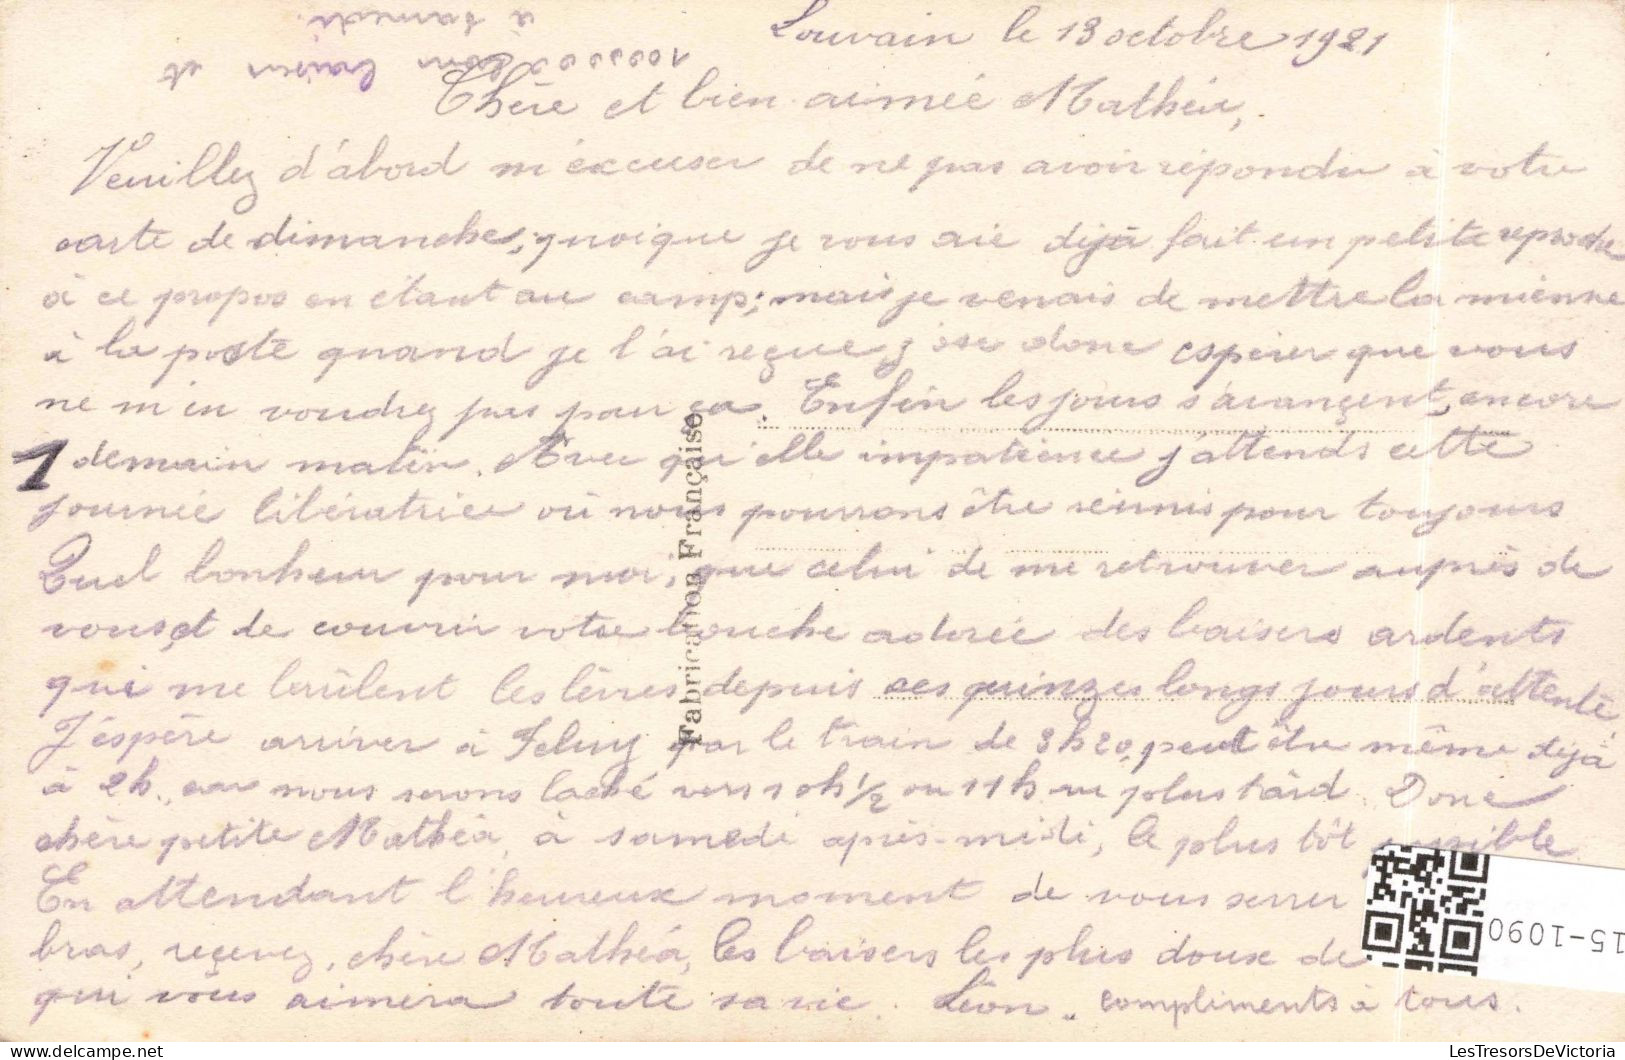 Louvain le 13 octobre 1921
100000 bons baisers et
à samedi.
Chère et bien aimée Mathéa,
Veuillez d'abord m'éxcuser de ne pas avoir répondu à votre
carte de dimanche, quoique je vous aie déjà fait un petite reproche
à ce propos en étant au camp; mais je venais de mettre la mienne
à la poste quand je l'ai reçue j'ose donc espérer que vous
ne m'en voudrez pas pour ça. Enfin les jours s'avançent, encore
1 demain matin. Avec quielle impatience j'attends cette
journée libératrice où nous pourrons être réunis pour toujours
Quel bonheur pour moi, que celui de me retrouver auprès de
vous, et de couvrir votre bouche adorée des baisers ardents
qui me brûlent les lèvres depuis ces quinzes longs jours d'attente,
J'éspère arriver à Feluy par le train de 3h20, peut être même déjà
à 2h., car nous serons laché vers 10h1/2 ou 11h. au plus tard. Donc
chère petite Mathéa, à samedi après-midi, le plus tôt possible.
En attendant l'heureux moment de vous serrer
bras, reçevez, chère Mathéa, les baisers les plus doux de
qui vous aimera toute sa vie. Léon. compliments à tous.
Fabrication Française
15-1090
LesTresorsDeVictoria